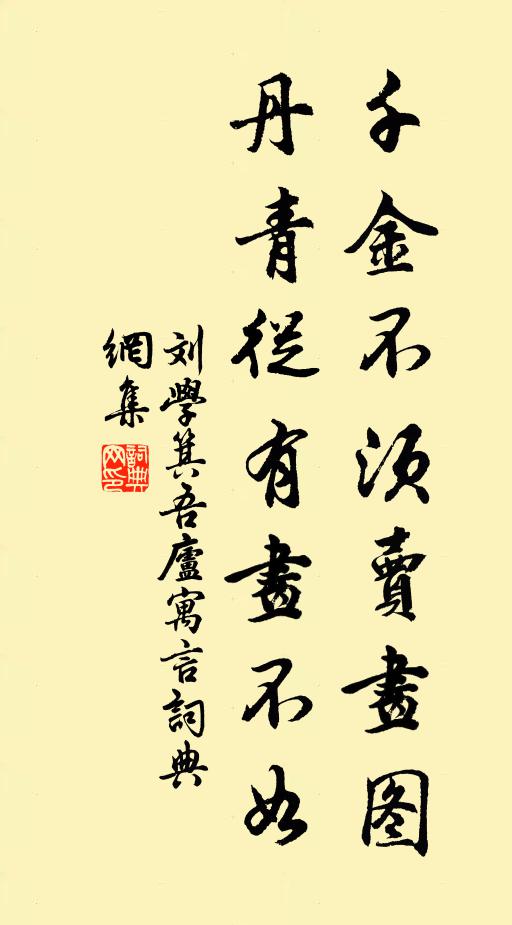 千金不須賣畫图
丹青從有畫不如
刘學箕吾廬寓言詞典
網集
詞典
网印